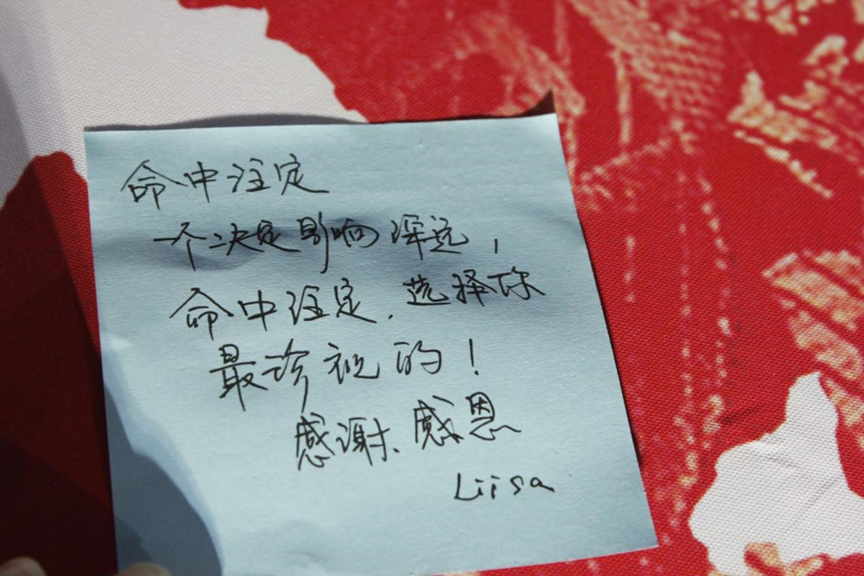 命中注定
一个决定影响深远,
命中注定.选择你
最珍视的!
感谢、感恩
Liisa